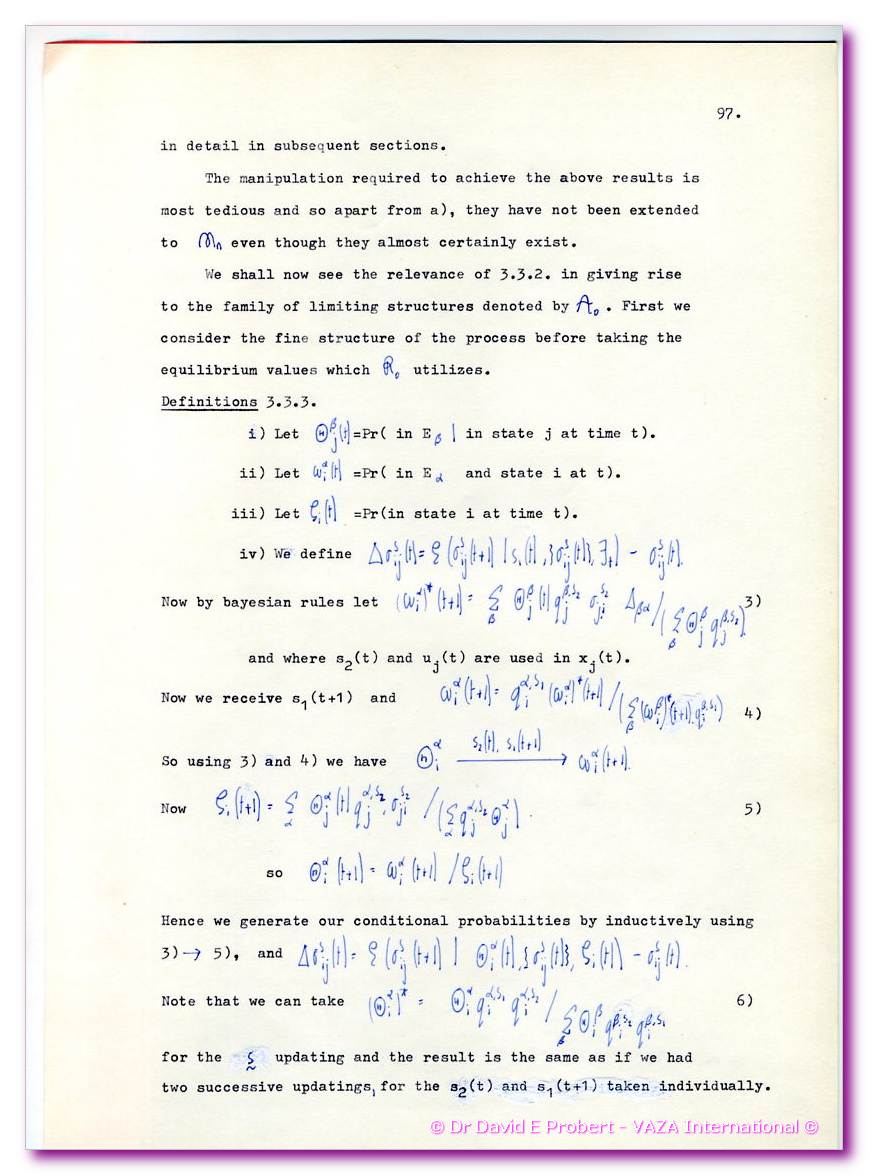 97.
in detail in subsequent sections.
The manipulation required to achieve the above results is
most tedious and so apart from a), they have not been extended
to 𝓜ₙ even though they almost certainly exist.
We shall now see the relevance of 3.3.2. in giving rise
to the family of limiting structures denoted by A₀. First we
consider the fine structure of the process before taking the
equilibrium values which R₀ utilizes.
Definitions 3.3.3.
i) Let Θⱼ^β(t) =Pr( in E_β | in state j at time t).
ii) Let ωᵢ^α(t) =Pr( in E_α and state i at t).
iii) Let ζᵢ(t) =Pr(in state i at time t).
iv) We define
Now by bayesian rules let (ωᵢ^α)*(t+1) = 3)
and where s₂(t) and uⱼ(t) are used in xⱼ(t).
Now we receive s₁(t+1) and ωᵢ^α(t+1) = qᵢ^{α,s₁} (ωᵢ^α)*(t+1) / (Σ_β (ωᵢ^β)*(t+1) qᵢ^{β,s₁}) 4)
So using 3) and 4) we have Θᵢ^α s₂(t), s₁(t+1) → ωᵢ^α(t+1).
Now ζᵢ(t+1) = 5)
so Θᵢ^α(t+1) = ωᵢ^α(t+1) / ζᵢ(t+1)
Hence we generate our conditional probabilities by inductively using
3) → 5), and
Note that we can take (Θᵢ^α)* = Θᵢ^α qᵢ^{α,s₁} qᵢ^{α,s₂} / Σ_β Θᵢ^β qᵢ^{β,s₂} qᵢ^{β,s₁} 6)
for the updating and the result is the same as if we had
two successive updatings, for the s₂(t) and s₁(t+1) taken individually.
© Dr David E Probert - VAZA International ©